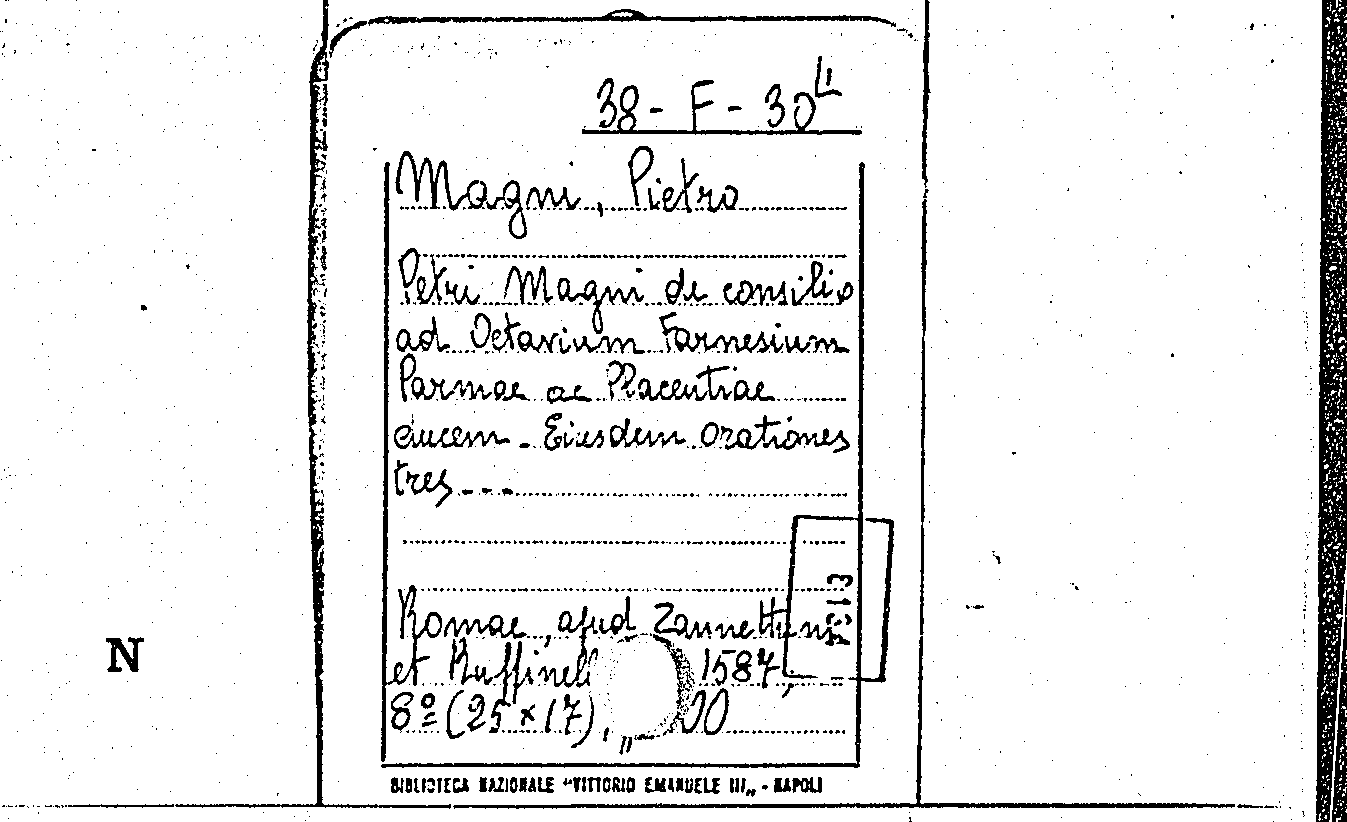 38 - F - 30
Magni, Pietro
Petri Magni de consilio
ad Octavium Farnesium
Parmae ac Placentiae
ducem. Eiusdem Orationes
tres ---
Romae, apud Zannettum
et Ruffinell 1587,
8º (25 x 17), 00
N
BIBLIOTECA NAZIONALE "VITTORIO EMANUELE III„ - NAPOLI